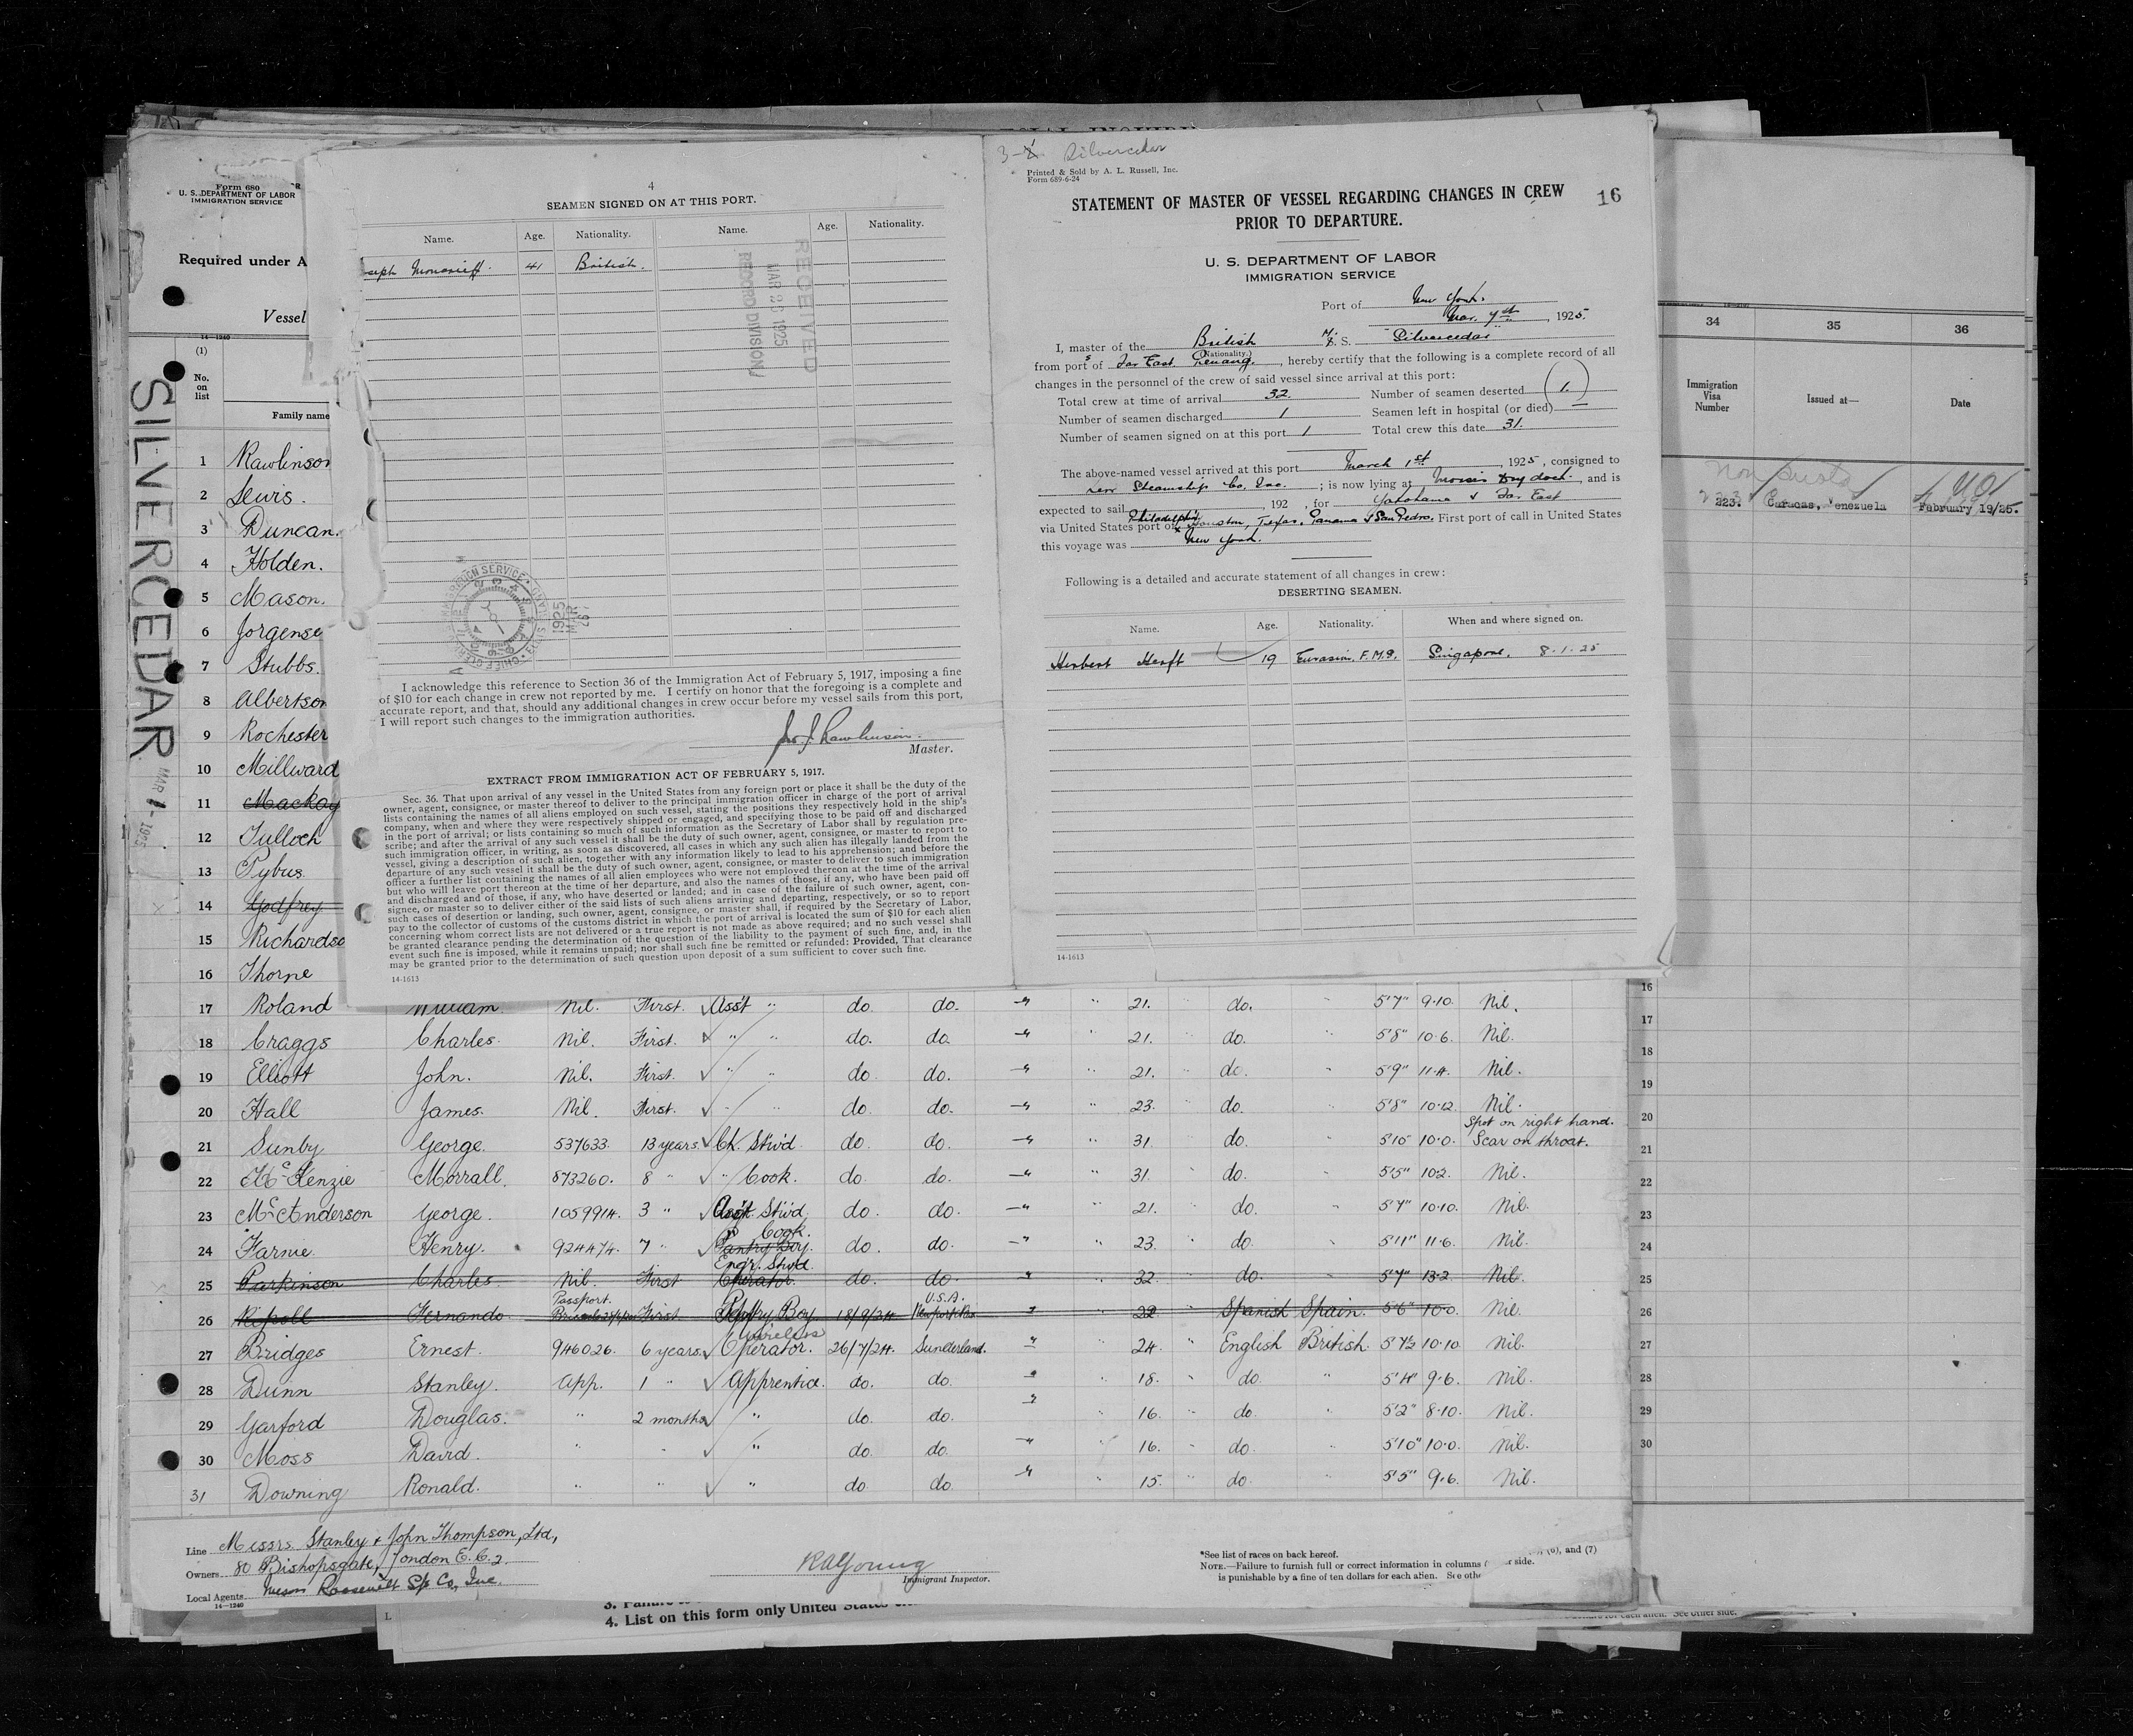 Form 680
U. S. DEPARTMENT OF LABOR
IMMIGRATION SERVICE
Required under A
Vessel
14—1240
(1)
No.
on
list
Family name
SILVERCEDAR
MAR 1 - 1925
1 Rawlinson
2 Lewis.
3 Duncan.
4 Holden.
5 Mason.
6 Jorgense
7 Stubbs.
8 Albertson
9 Rochester
10 Millward
11 Mackay
12 Tulloch
13 Pybus
14 Godfrey
15 Richardso
16 Thorne
4
SEAMEN SIGNED ON AT THIS PORT.
Name. Age. Nationality. Name. Age. Nationality.
seph Moncrieff. 41 British.
RECEIVED
MAR 26 1925
RECORD DIVISION
I acknowledge this reference to Section 36 of the Immigration Act of February 5, 1917, imposing a fine
of $10 for each change in crew not reported by me. I certify on honor that the foregoing is a complete and
accurate report, and that, should any additional changes in crew occur before my vessel sails from this port,
I will report such changes to the immigration authorities.
Rawlinson.
Master.
EXTRACT FROM IMMIGRATION ACT OF FEBRUARY 5, 1917.
Sec. 36. That upon arrival of any vessel in the United States from any foreign port or place it shall be the duty of the
owner, agent, consignee, or master thereof to deliver to the principal immigration officer in charge of the port of arrival
lists containing the names of all aliens employed on such vessel, stating the positions they respectively hold in the ship's
company, when and where they were respectively shipped or engaged, and specifying those to be paid off and discharged
in the port of arrival; or lists containing so much of such information as the Secretary of Labor shall by regulation pre-
scribe; and after the arrival of any such vessel it shall be the duty of such owner, agent, consignee, or master to report to
such immigration officer, in writing, as soon as discovered, all cases in which any such alien has illegally landed from the
vessel, giving a description of such alien, together with any information likely to lead to his apprehension; and before the
departure of any such vessel it shall be the duty of such owner, agent, consignee, or master to deliver to such immigration
officer a further list containing the names of all alien employees who were not employed thereon at the time of the arrival
but who will leave port thereon at the time of her departure, and also the names of those, if any, who have been paid off
and discharged and of those, if any, who have deserted or landed; and in case of the failure of such owner, agent, con-
signee, or master so to deliver either of the said lists of such aliens arriving and departing, respectively, or so to report
such cases of desertion or landing, such owner, agent, consignee, or master shall, if required by the Secretary of Labor,
pay to the collector of customs of the customs district in which the port of arrival is located the sum of $10 for each alien
concerning whom correct lists are not delivered or a true report is not made as above required; and no such vessel shall
be granted clearance pending the determination of the question of the liability to the payment of such fine, and, in the
event such fine is imposed, while it remains unpaid; nor shall such fine be remitted or refunded: Provided, That clearance
may be granted prior to the determination of such question upon deposit of a sum sufficient to cover such fine.
14-1613
Silvercedar
Printed & Sold by A. L. Russell, Inc.
Form 689-6-24
16
STATEMENT OF MASTER OF VESSEL REGARDING CHANGES IN CREW
PRIOR TO DEPARTURE.
U. S. DEPARTMENT OF LABOR
IMMIGRATION SERVICE
Port of New York.
Mar. 7th, 1925.
I, master of the British M. S. Silvercedar
(Nationality.)
from ports of Far East. Penang., hereby certify that the following is a complete record of all
changes in the personnel of the crew of said vessel since arrival at this port:
Total crew at time of arrival 32. Number of seamen deserted (1.)
Number of seamen discharged 1 Seamen left in hospital (or died) —
Number of seamen signed on at this port 1 Total crew this date 31.
The above-named vessel arrived at this port March 1st, 1925, consigned to
Steamship Co. Inc.; is now lying at Dry dock, and is
expected to sail , 192 , for Yokohama & Far East
via United States port of Philadelphia Houston, Texas, Panama & San Pedro. First port of call in United States
this voyage was New York.
Following is a detailed and accurate statement of all changes in crew:
DESERTING SEAMEN.
Name. Age. Nationality. When and where signed on.
Herbert Herft 19 Eurasian, F.M.S. Singapore. 8.1.25
14-1613
34 35 36
Immigration
Visa
Number
Issued at—
Date
223. Caracas, Venezuela February 19/25.
17 Roland William. Nil. First. Ass't " do. do. " 21. do. 5'7" 9·10. Nil.
18 Craggs Charles. Nil. First. " " do. do. " 21. do. 5'8" 10·6. Nil.
19 Elliott John. Nil. First. " " do. do. " 21. do. 5'9" 11·4. Nil.
20 Hall James. Nil. First. " " do. do. " 23. do. 5'8" 10·12. Nil.
Spot on right hand.
21 Sunby George. 537633. 13 years. Ch. Stw'd do. do. " 31. do. 5'10 10·0. Scar on throat.
22 McKenzie Morrall. 873260. 8 " " Cook. do. do. " 31. do. 5'5" 10·2. Nil.
23 McAnderson George. 1059914. 3 " Ass't. Stw'd do. do. " 21. do. 5'7" 10·10. Nil.
Cook.
24 Farnie. Henry. 924474. 7 " Pantry Boy. do. do. " 23. do. 5'11" 11·6. Nil.
Engr. Stwd.
25 Parkinson Charles Nil. First Operator. do. do. " 32. do. 5'7" 13·2. Nil.
Passport. U.S.A.
26 Fernando First Boy 18/9/24 " 22 Spanish Spain. 5'6" 10·0. Nil.
Wireless
27 Bridges Ernest. 946026. 6 years. Operator. 26/7/24. Sunderland. " 24. English British. 5'7½ 10·10. Nil.
28 Dunn Stanley. App. 1 " Apprentice. do. do. " 18. " do. " 5'4" 9·6. Nil.
29 Garford Douglas. " 2 months " do. do. " 16. " do. " 5'2" 8·10. Nil.
30 Moss David. " " " do. do. " 16. " do. " 5'10" 10·0. Nil.
31 Downing Ronald. " " " do. do. " 15. " do. " 5'5" 9·6. Nil.
16
17
18
19
20
21
22
23
24
25
26
27
28
29
30
Line Messrs. Stanley & John Thompson, Ltd.,
Owners 80 Bishopsgate, London E.C.2.
Local Agents Roosevelt S/S Co., Inc.
14—1240
RAYoung
Immigrant Inspector.
*See list of races on back hereof.
NOTE.—Failure to furnish full or correct information in columns
(6), and (7)
is punishable by a fine of ten dollars for each alien. See othe
r side.
4. List on this form only United States
See other side.